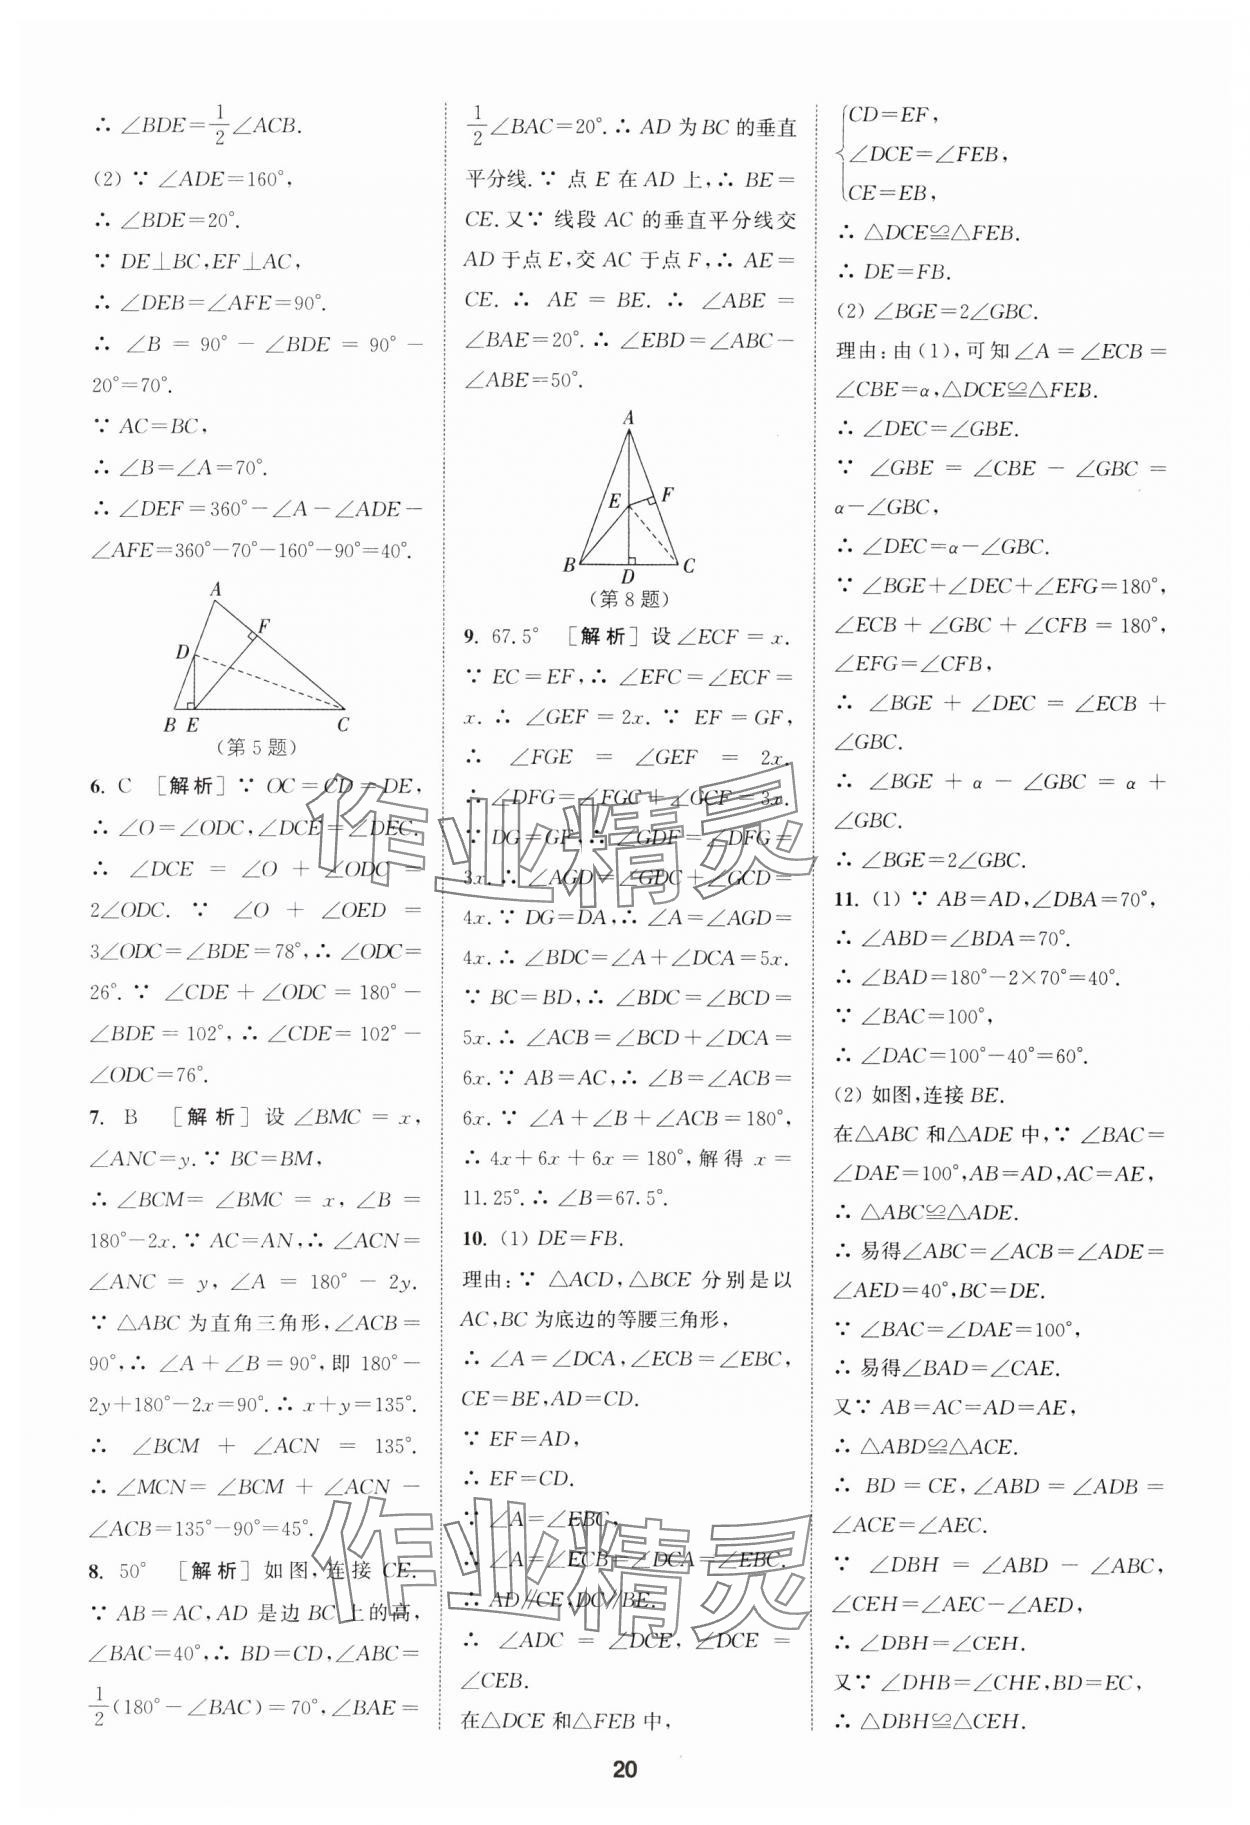 ∴ ∠BDE=1/2∠ACB.
(2) ∵ ∠ADE=160°,
∴ ∠BDE=20°.
∵ DE⊥BC,EF⊥AC,
∴ ∠DEB=∠AFE=90°.
∴ ∠B=90°-∠BDE=90°-
20°=70°.
∵ AC=BC,
∴ ∠B=∠A=70°.
∴ ∠DEF=360°-∠A-∠ADE-
∠AFE=360°-70°-160°-90°=40°.
A
F
D
B E C
(第5题)
6. C [解析] ∵ OC=CD=DE,
∴ ∠O=∠ODC,∠DCE=∠DEC.
∴ ∠DCE=∠O+∠ODC=
2∠ODC. ∵ ∠O+∠OED=
3∠ODC=∠BDE=78°,∴ ∠ODC=
26°. ∵ ∠CDE+∠ODC=180°-
∠BDE=102°,∴ ∠CDE=102°-
∠ODC=76°.
7. B [解析] 设∠BMC=x,
∠ANC=y. ∵ BC=BM,
∴ ∠BCM=∠BMC=x,∠B=
180°-2x. ∵ AC=AN,∴ ∠ACN=
∠ANC=y,∠A=180°-2y.
∵ △ABC为直角三角形,∠ACB=
90°,∴ ∠A+∠B=90°,即180°-
2y+180°-2x=90°. ∴ x+y=135°.
∴ ∠BCM+∠ACN=135°.
∴ ∠MCN=∠BCM+∠ACN-
∠ACB=135°-90°=45°.
8. 50° [解析] 如图,连接CE.
∵ AB=AC,AD是边BC上的高,
∠BAC=40°,∴ BD=CD,∠ABC=
1/2(180°-∠BAC)=70°,∠BAE=
1/2∠BAC=20°. ∴ AD为BC的垂直
平分线. ∵ 点E在AD上,∴ BE=
CE. 又∵ 线段AC的垂直平分线交
AD于点E,交AC于点F,∴ AE=
CE. ∴ AE=BE. ∴ ∠ABE=
∠BAE=20°. ∴ ∠EBD=∠ABC-
∠ABE=50°.
A
E F
B D C
(第8题)
9. 67.5° [解析] 设∠ECF=x.
∵ EC=EF,∴ ∠EFC=∠ECF=
x. ∴ ∠GEF=2x. ∵ EF=GF,
∴ ∠FGE=∠GEF=2x.
∴ ∠DFG=∠FGC+∠GCF=3x.
∵ DG=GF,∴ ∠GDF=∠DFG=
3x. ∴ ∠AGD=∠GDC+∠GCD=
4x. ∵ DG=DA,∴ ∠A=∠AGD=
4x. ∴ ∠BDC=∠A+∠DCA=5x.
∵ BC=BD,∴ ∠BDC=∠BCD=
5x. ∴ ∠ACB=∠BCD+∠DCA=
6x. ∵ AB=AC,∴ ∠B=∠ACB=
6x. ∵ ∠A+∠B+∠ACB=180°,
∴ 4x+6x+6x=180°,解得x=
11.25°. ∴ ∠B=67.5°.
10. (1) DE=FB.
理由:∵ △ACD,△BCE分别是以
AC,BC为底边的等腰三角形,
∴ ∠A=∠DCA,∠ECB=∠EBC,
CE=BE,AD=CD.
∵ EF=AD,
∴ EF=CD.
∵ ∠A=∠EBC,
∴ ∠A=∠ECB=∠DCA=∠EBC.
∴ AD∥CE,DC∥BE.
∴ ∠ADC=∠DCE,∠DCE=
∠CEB.
在△DCE和△FEB中,
CD=EF,
∠DCE=∠FEB,
CE=EB,
∴ △DCE≌△FEB.
∴ DE=FB.
(2) ∠BGE=2∠GBC.
理由:由(1),可知∠A=∠ECB=
∠CBE=α,△DCE≌△FEB.
∴ ∠DEC=∠GBE.
∵ ∠GBE=∠CBE-∠GBC=
α-∠GBC,
∴ ∠DEC=α-∠GBC.
∵ ∠BGE+∠DEC+∠EFG=180°,
∠ECB+∠GBC+∠CFB=180°,
∠EFG=∠CFB,
∴ ∠BGE+∠DEC=∠ECB+
∠GBC.
∴ ∠BGE+α-∠GBC=α+
∠GBC.
∴ ∠BGE=2∠GBC.
11. (1) ∵ AB=AD,∠DBA=70°,
∴ ∠ABD=∠BDA=70°.
∴ ∠BAD=180°-2×70°=40°.
∵ ∠BAC=100°,
∴ ∠DAC=100°-40°=60°.
(2) 如图,连接BE.
在△ABC和△ADE中,∵ ∠BAC=
∠DAE=100°,AB=AD,AC=AE,
∴ △ABC≌△ADE.
∴ 易得∠ABC=∠ACB=∠ADE=
∠AED=40°,BC=DE.
∵ ∠BAC=∠DAE=100°,
∴ 易得∠BAD=∠CAE.
又∵ AB=AC=AD=AE,
∴ △ABD≌△ACE.
∴ BD=CE,∠ABD=∠ADB=
∠ACE=∠AEC.
∵ ∠DBH=∠ABD-∠ABC,
∠CEH=∠AEC-∠AED,
∴ ∠DBH=∠CEH.
又∵ ∠DHB=∠CHE,BD=EC,
∴ △DBH≌△CEH.
作业精灵
作业精灵
20